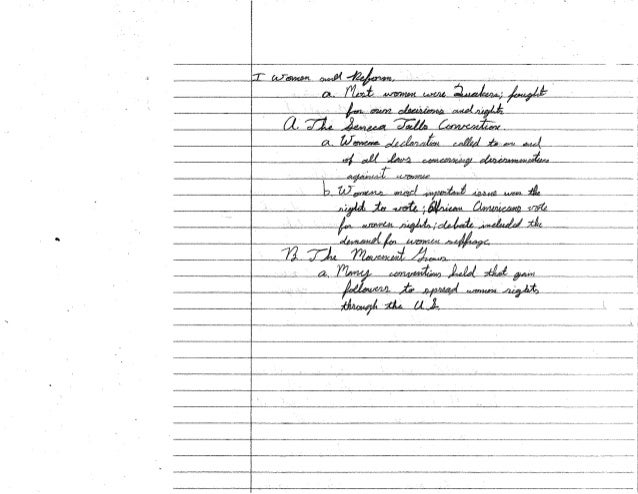 I Women and Reform.
a. Most women were Quakers; fought
for own decisions and rights
A. The Seneca Falls Convention.
a. Womens declaration called to an end
of all laws concerning discrimination
against women
b. Womens most important issue was the
right to vote; African Americans vote
for women rights; debate included the
demand for women suffrage.
B The Movement Grows
a. Many conventions held that gain
followers to spread women rights
through the U.S.